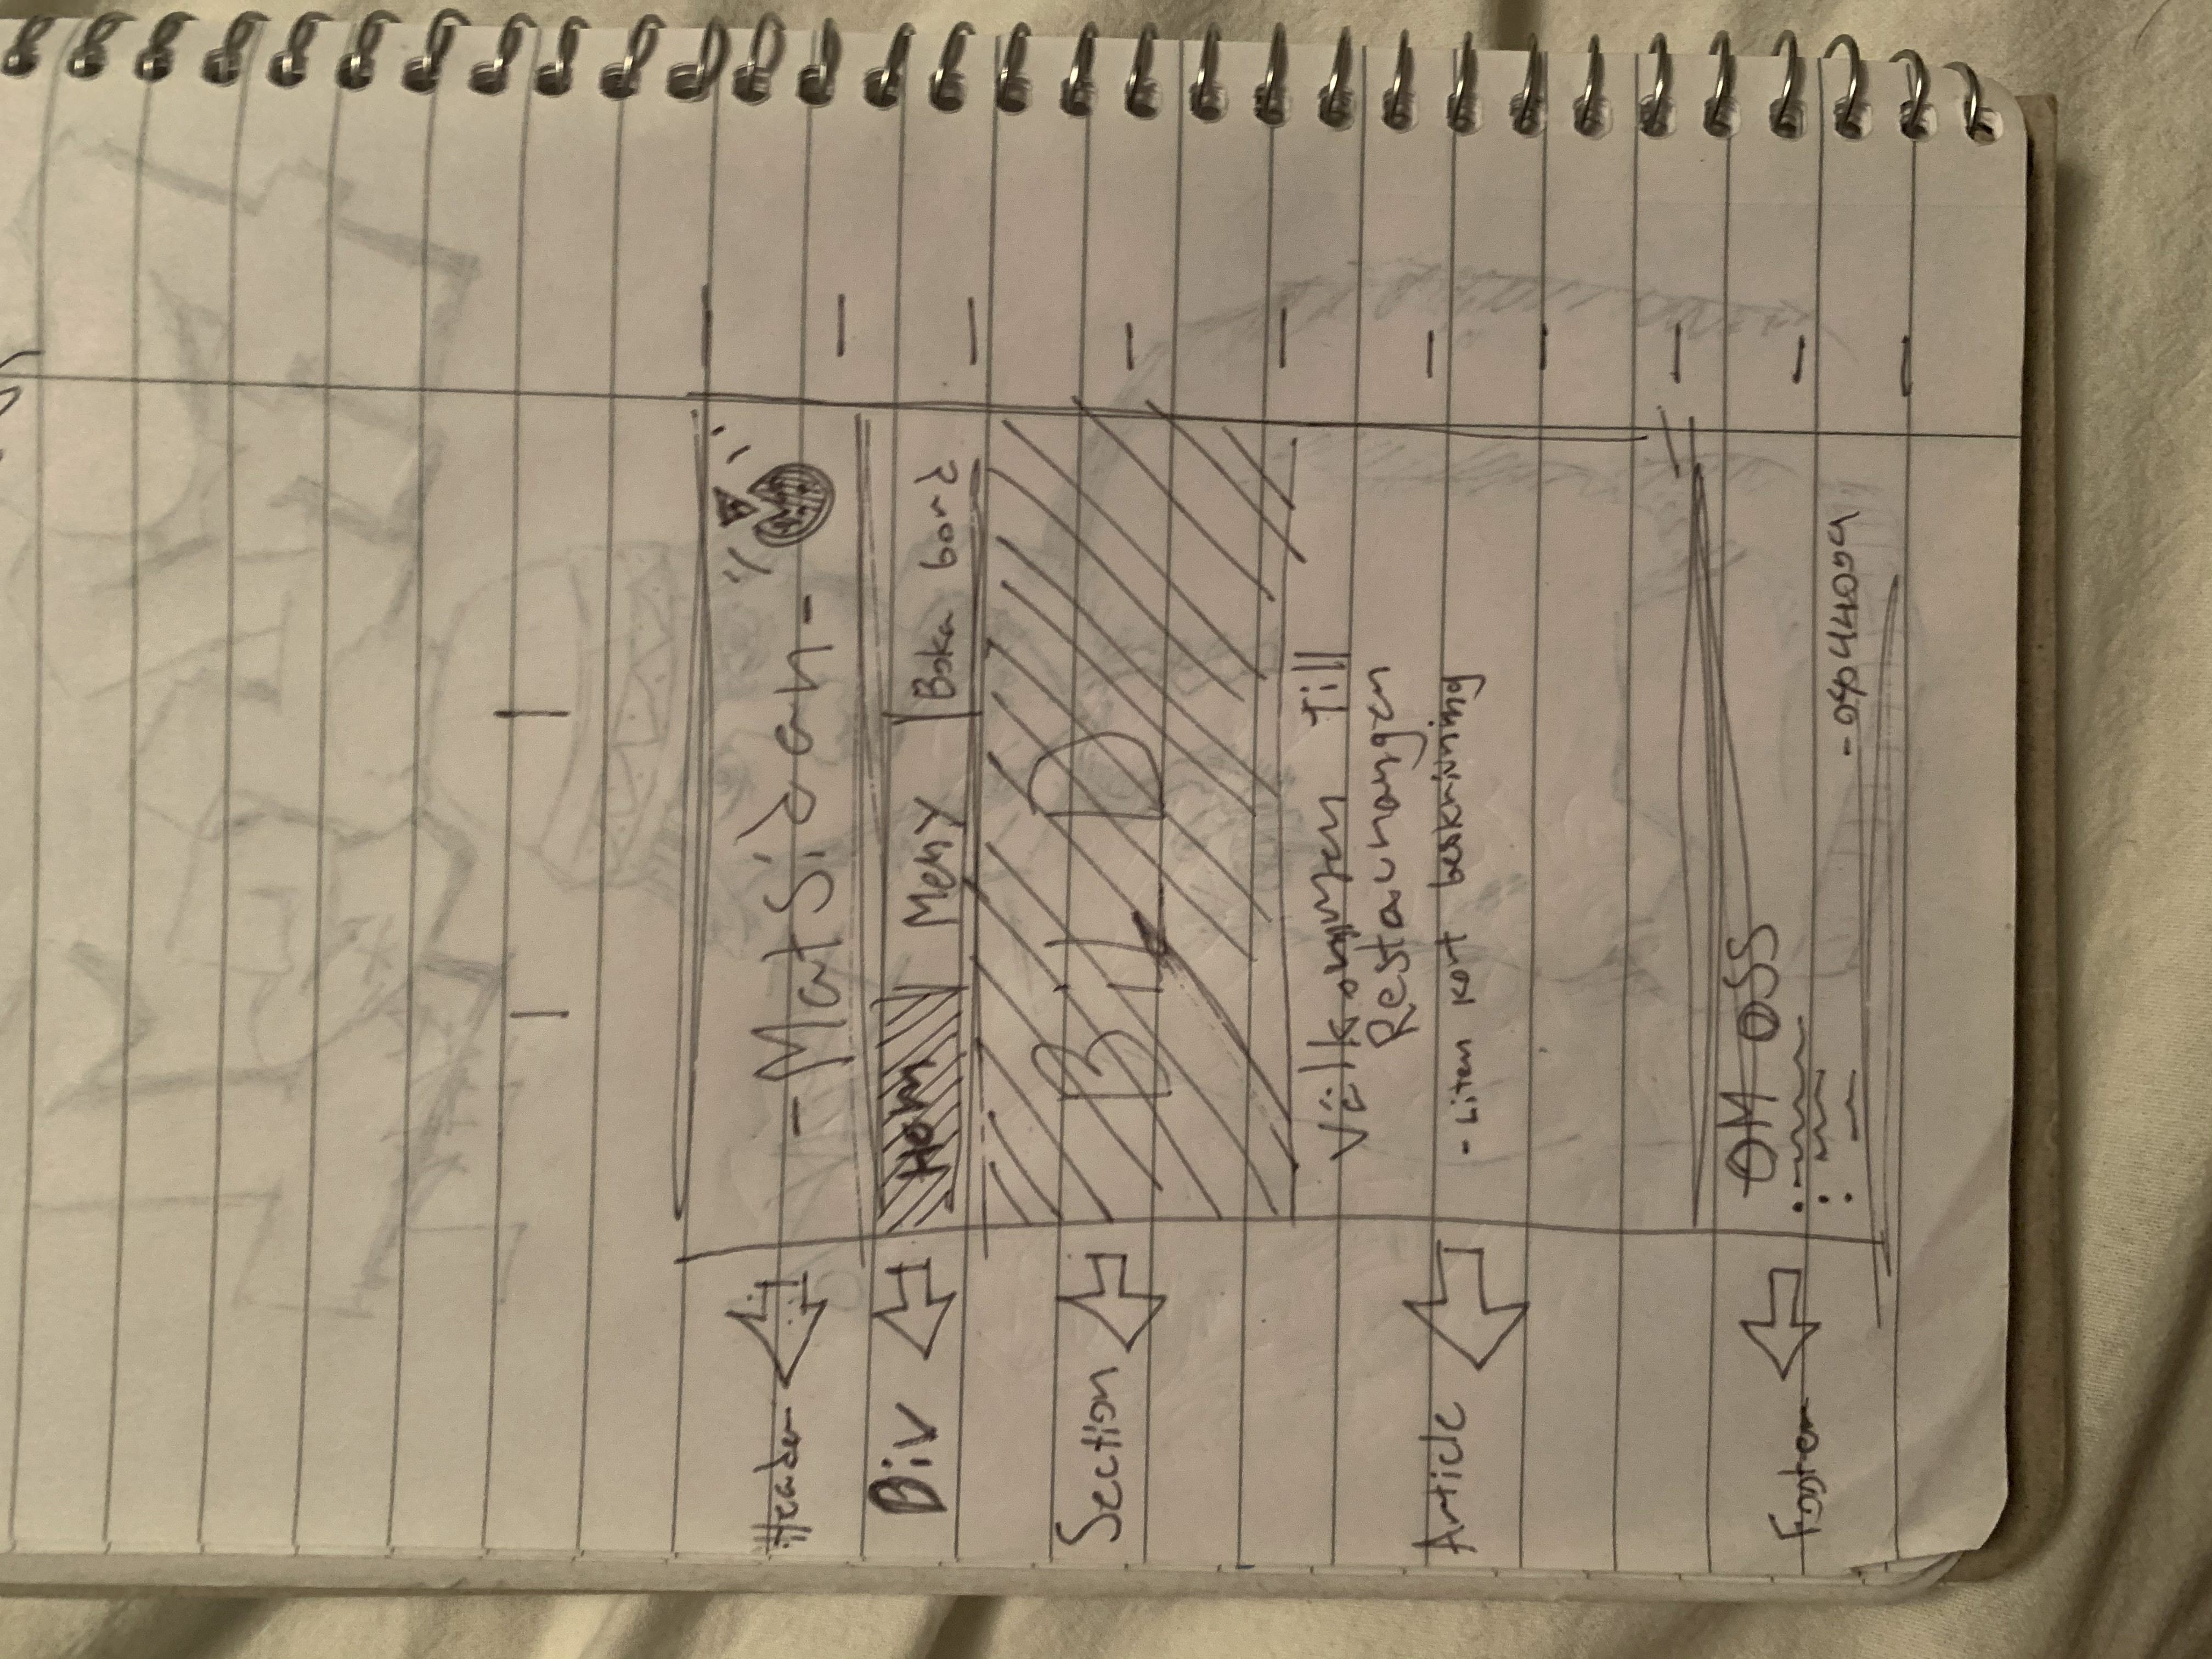 Header
-Matsidan-
Div
Hem
Meny
Boka bord
Section
BilD
Välkommen till
Restaurangen
Article
-Liten kort beskrivning
OM OSS
Footer